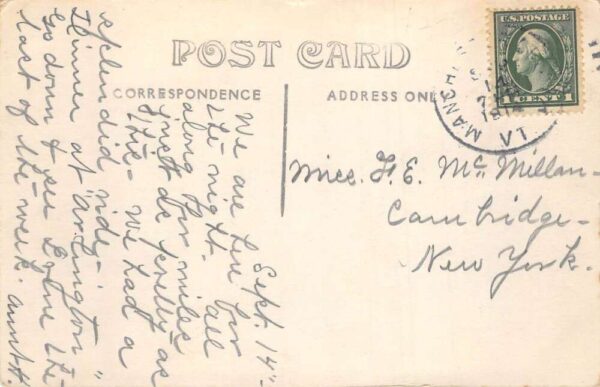 POST CARD
CORRESPONDENCE
ADDRESS ONLY
U.S. POSTAGE
1 CENT 1
MANCH
VT
Mrs. F. E. McMillan-
Cambridge-
New York.
Sept. 14"
We are here for
the night. all
along for miles
just as pretty as
this - we had a
splendid ride -
Dinner at Arlington"
Go down & see Erne the
last of the week. aunt H